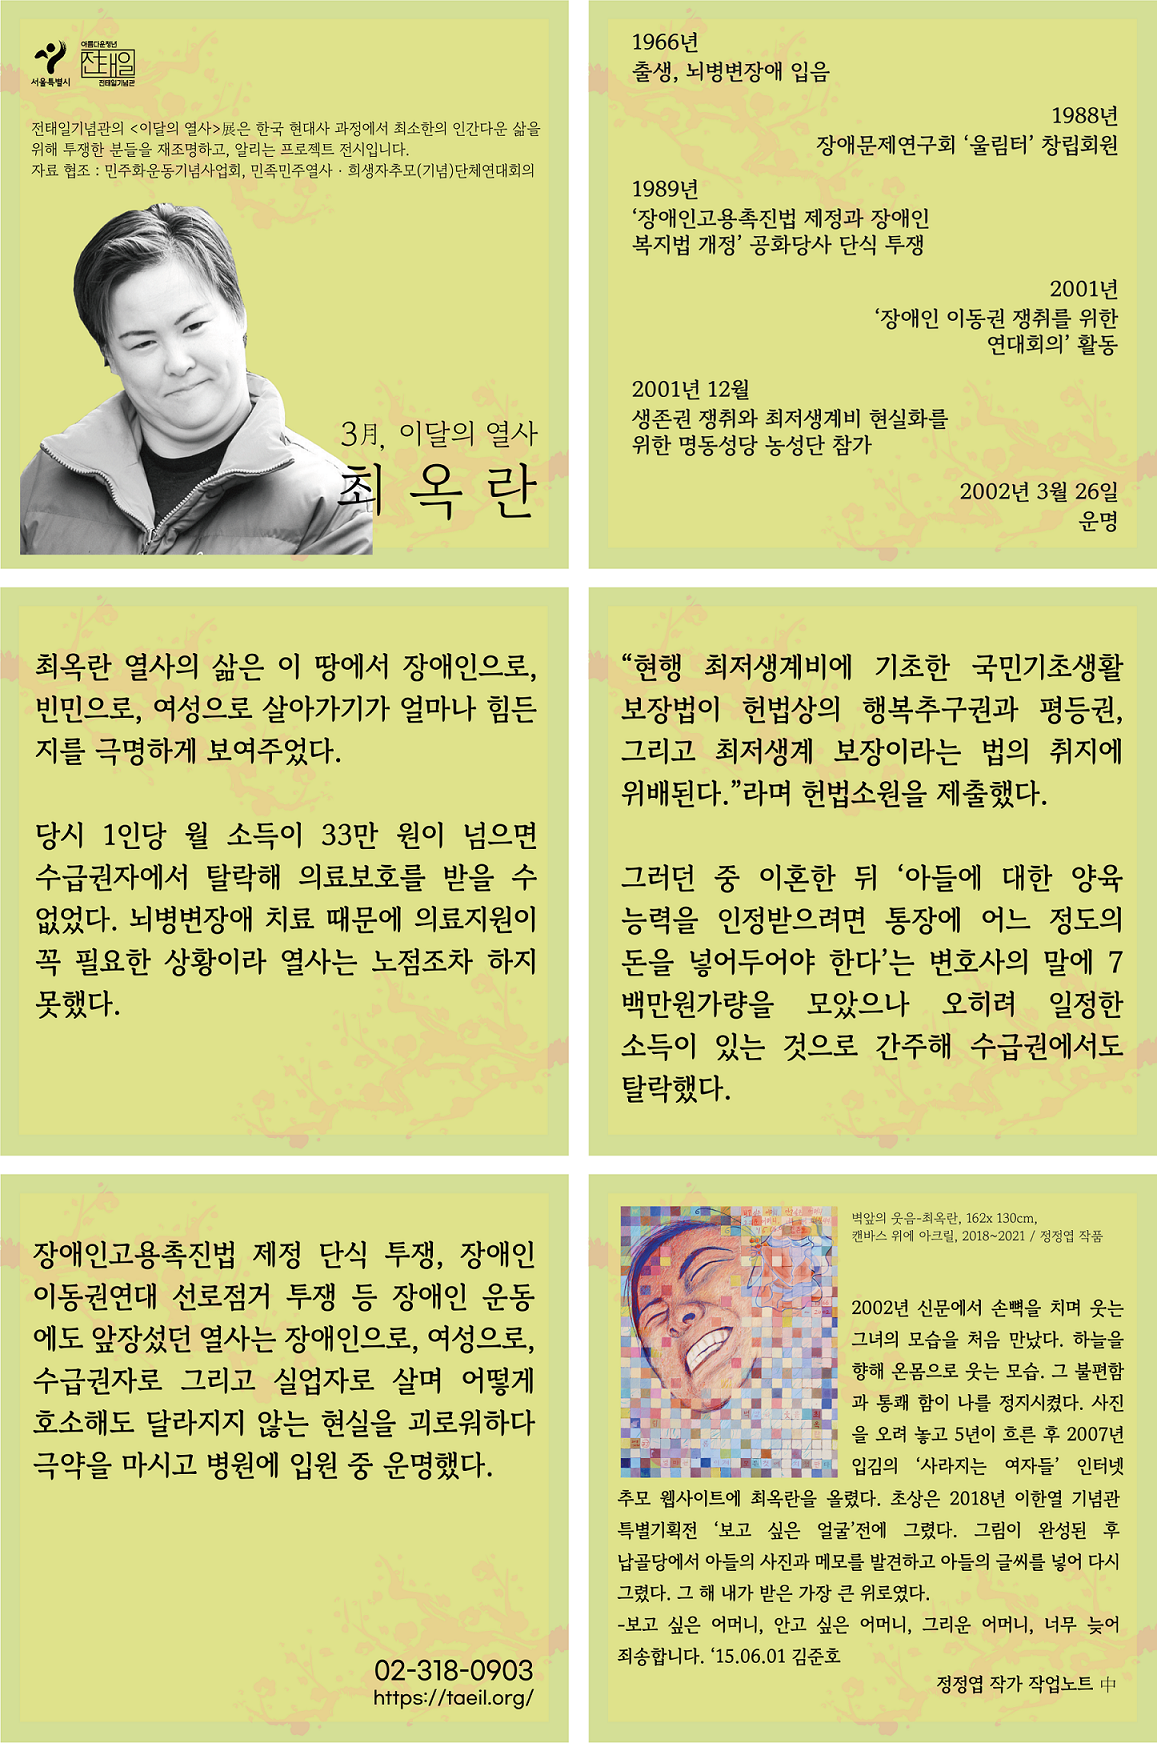 서울특별시
아름다운청년
전태일
전태일기념관
전태일기념관의 <이달의 열사>展은 한국 현대사 과정에서 최소한의 인간다운 삶을
위해 투쟁한 분들을 재조명하고, 알리는 프로젝트 전시입니다.
자료 협조 : 민주화운동기념사업회, 민족민주열사ㆍ희생자추모(기념)단체연대회의
3月, 이달의 열사
최옥란
1966년
출생, 뇌병변장애 입음
1988년
장애문제연구회 ‘울림터’ 창립회원
1989년
‘장애인고용촉진법 제정과 장애인
복지법 개정’ 공화당사 단식 투쟁
2001년
‘장애인 이동권 쟁취를 위한
연대회의’ 활동
2001년 12월
생존권 쟁취와 최저생계비 현실화를
위한 명동성당 농성단 참가
2002년 3월 26일
운명
최옥란 열사의 삶은 이 땅에서 장애인으로,
빈민으로, 여성으로 살아가기가 얼마나 힘든
지를 극명하게 보여주었다.
당시 1인당 월 소득이 33만 원이 넘으면
수급권자에서 탈락해 의료보호를 받을 수
없었다. 뇌병변장애 치료 때문에 의료지원이
꼭 필요한 상황이라 열사는 노점조차 하지
못했다.
“현행 최저생계비에 기초한 국민기초생활
보장법이 헌법상의 행복추구권과 평등권,
그리고 최저생계 보장이라는 법의 취지에
위배된다.”라며 헌법소원을 제출했다.
그러던 중 이혼한 뒤 ‘아들에 대한 양육
능력을 인정받으려면 통장에 어느 정도의
돈을 넣어두어야 한다’는 변호사의 말에 7
백만원가량을 모았으나 오히려 일정한
소득이 있는 것으로 간주해 수급권에서도
탈락했다.
장애인고용촉진법 제정 단식 투쟁, 장애인
이동권연대 선로점거 투쟁 등 장애인 운동
에도 앞장섰던 열사는 장애인으로, 여성으로,
수급권자로 그리고 실업자로 살며 어떻게
호소해도 달라지지 않는 현실을 괴로워하다
극약을 마시고 병원에 입원 중 운명했다.
02-318-0903
https://taeil.org/
벽앞의 웃음-최옥란, 162x 130cm,
캔바스 위에 아크릴, 2018~2021 / 정정엽 작품
2002년 신문에서 손뼉을 치며 웃는
그녀의 모습을 처음 만났다. 하늘을
향해 온몸으로 웃는 모습. 그 불편함
과 통쾌 함이 나를 정지시켰다. 사진
을 오려 놓고 5년이 흐른 후 2007년
입김의 ‘사라지는 여자들’ 인터넷
추모 웹사이트에 최옥란을 올렸다. 초상은 2018년 이한열 기념관
특별기획전 ‘보고 싶은 얼굴’전에 그렸다. 그림이 완성된 후
납골당에서 아들의 사진과 메모를 발견하고 아들의 글씨를 넣어 다시
그렸다. 그 해 내가 받은 가장 큰 위로였다.
-보고 싶은 어머니, 안고 싶은 어머니, 그리운 어머니, 너무 늦어
죄송합니다. ‘15.06.01 김준호
정정엽 작가 작업노트 中